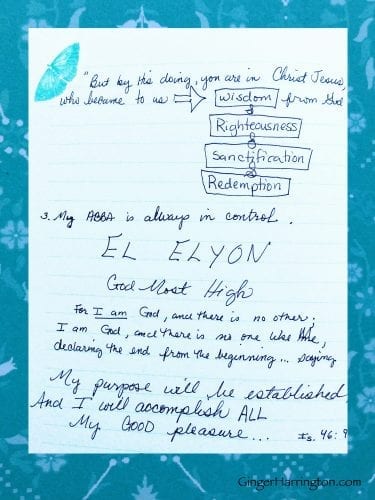 "But by His doing, you are in Christ Jesus,
who became to us ⇒ Wisdom from God
Righteousness
Sanctification
Redemption
3. My ABBA is always in control.
EL ELYON
God Most High
For I am God, and there is no other;
I am God, and there is no one like Me,
declaring the end from the beginning... saying
My purpose will be established
And I will accomplish ALL
My GOOD pleasure...
Is. 46:9
GingerHarrington.com